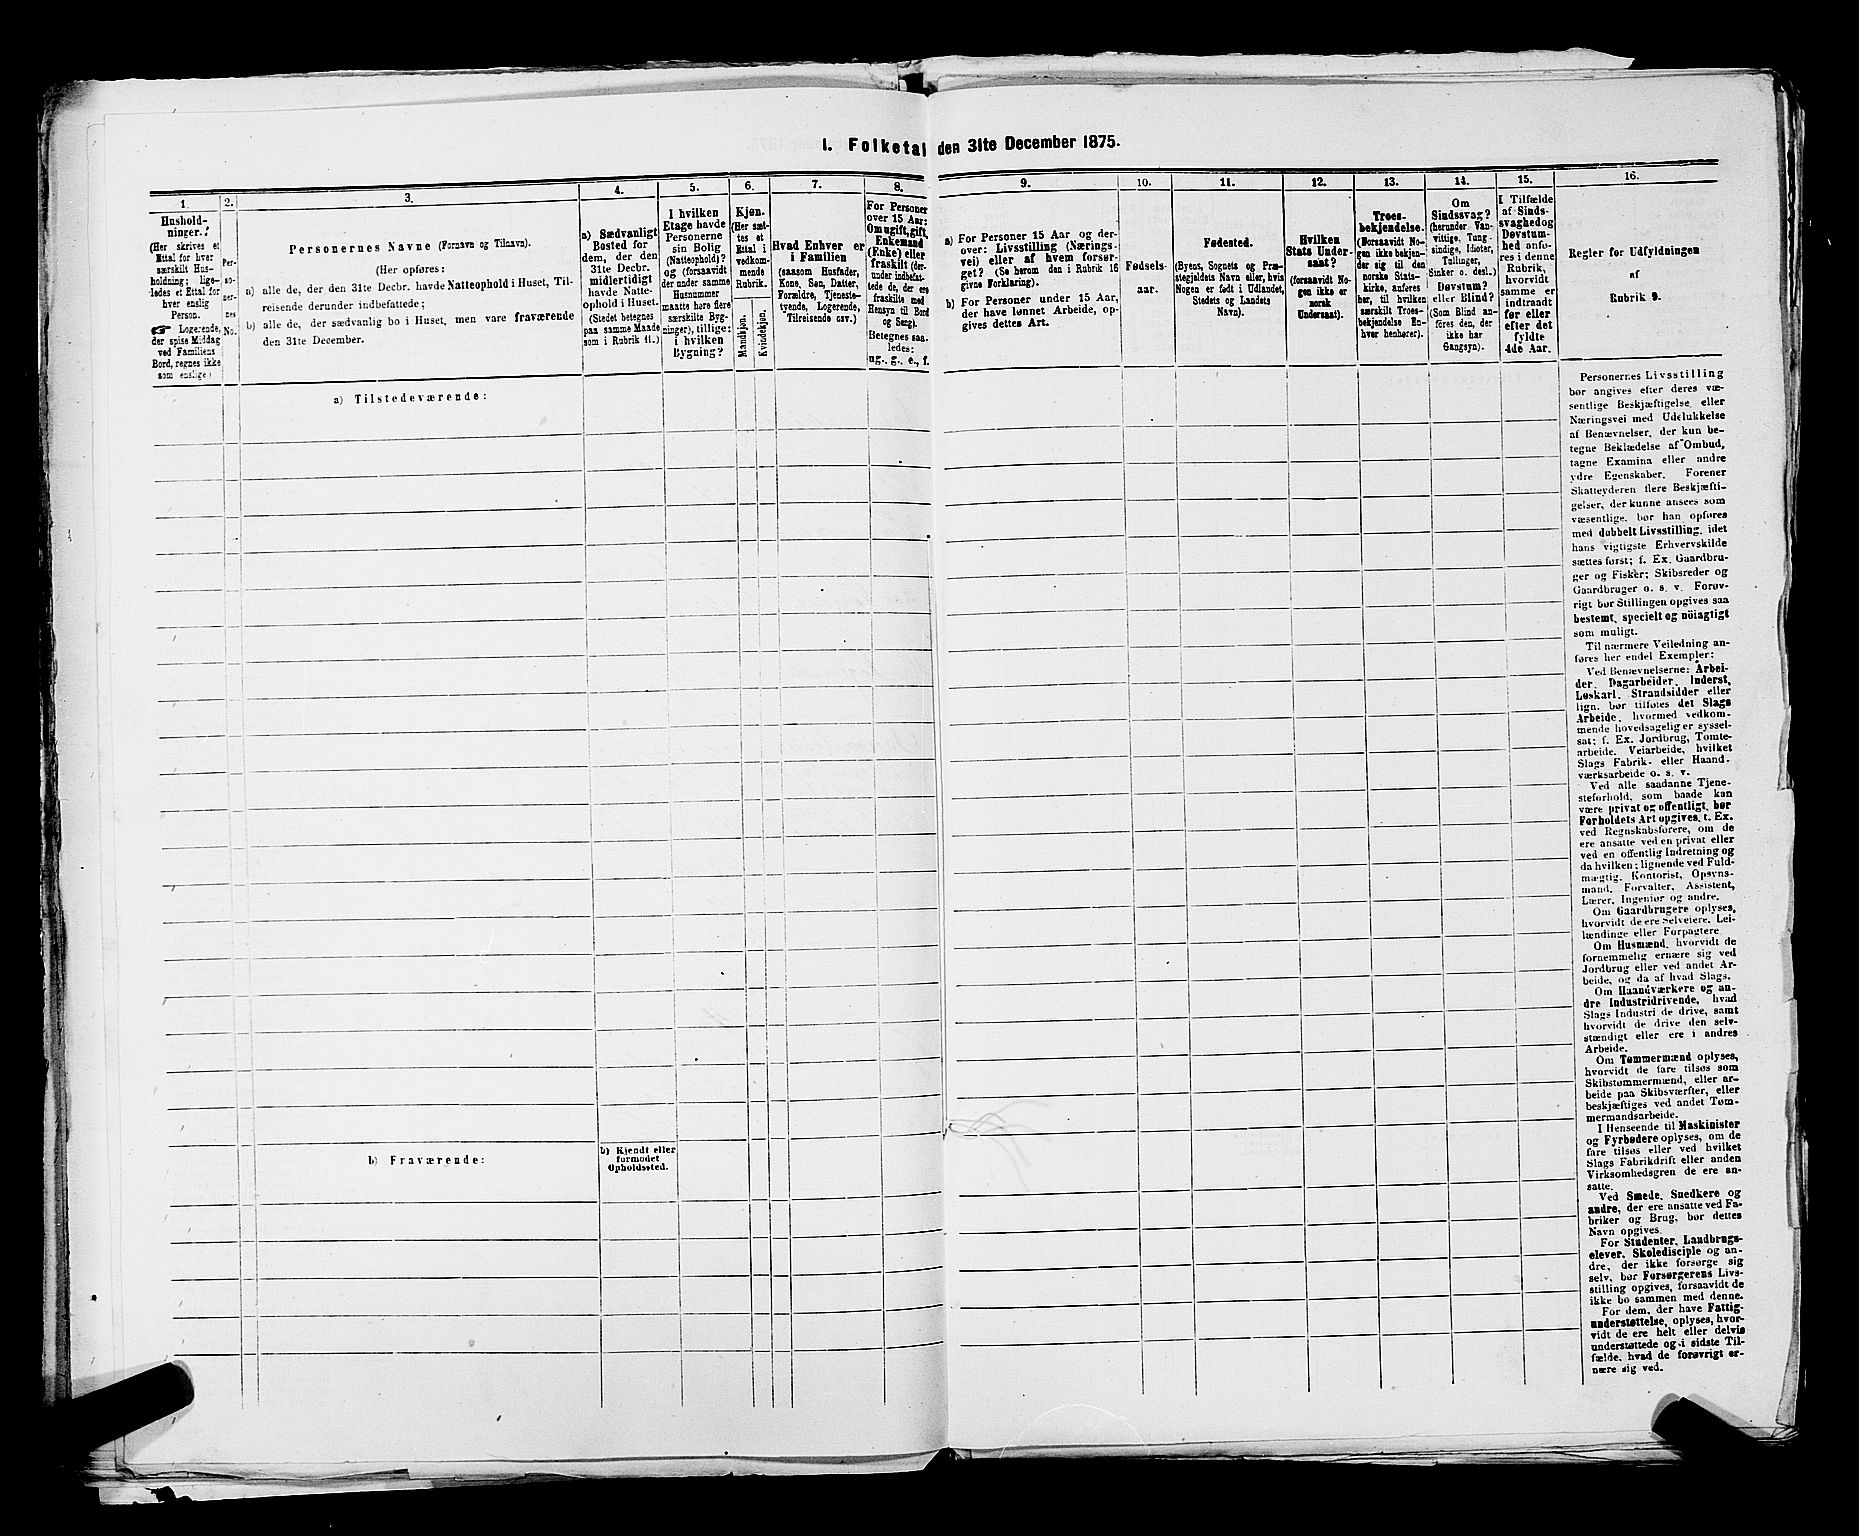 I. Folketal den 31te December 1875.
1.
Hushold-
ninger.
(Her skrives et
Ettal for hver
særskilt Hus-
holdning; lige-
ledes et Ettal for
hver enslig
Person.
☞ Logerende,
der spise Middag
ved Familiens
Bord, regnes ikke
som enslige)
2.
Per-
so-
ner-
nes
No.
3.
Personernes Navne (Fornavn og Tilnavn).
(Her opføres:
a) alle de, der den 31te Decbr. havde Natteophold i Huset, Til-
reisende derunder indbefattede;
b) alle de, der sædvanlig bo i Huset, men vare fraværende
den 31te December.
4.
a) Sædvanligt
Bosted for
dem, der den
31te Decbr.
midlertidigt
havde Natte-
ophold i Huset.
(Stedet betegnes
paa samme Maade
som i Rubrik 11.)
5.
I hvilken
Etage havde
Personerne
sin Bolig
(Natteophold)?
og (forsaavidt
der under samme
Husnummer
maatte høre flere
særskilte Byg-
ninger), tillige:
i hvilken
Bygning?
6.
Kjøn.
(Her sæt-
tes et
Ettal i
vedkom-
mende
Rubrik.
Mandkjøn.
Kvindekjøn.
7.
Hvad Enhver er
i Familien
(saasom Husfader,
Kone, Søn, Datter,
Forældre, Tjeneste-
tyende, Logerende,
Tilreisende osv.)
8.
For Personer
over 15 Aar:
Om ugift, gift,
Enkemand
(Enke) eller
fraskilt (der-
under indbefat-
tede de, der ere
fraskilte med
Hensyn til Bord
og Seng).
Betegnes saa-
ledes:
ug., g., e., f.
9.
a) For Personer 15 Aar og der-
over: Livsstilling (Nærings-
vei) eller af hvem forsør-
get? (Se herom den i Rubrik 16
givne Forklaring).
b) For Personer under 15 Aar,
der have lønnet Arbeide, op-
gives dettes Art.
10.
Fødsels-
aar.
11.
Fødested.
(Byens, Sognets og Præ-
stegjeldets Navn eller, hvis
Nogen er født i Udlandet,
Stedets og Landets
Navn).
12.
Hvilken
Stats Under-
saat?
(forsaavidt No-
gen ikke er
norsk
Undersaat).
13.
Troes-
bekjendelse.
(Forsaavidt No-
gen ikke bekjen-
der sig til den
norske Stats-
kirke, anføres
her, til hvilken
særskilt Troes-
bekjendelse En-
hver henhører).
14.
Om
Sindssvag?
(herunder Van-
vittige, Tung-
sindige, Idioter,
Tullinger,
Sinker o. desl.)
Døvstum?
eller Blind?
(Som Blind an-
føres den, der
ikke har
Gangsyn).
15.
I Tilfælde
af Sinds-
svaghed og
Døvstum-
hed anfø-
res i denne
Rubrik,
hvorvidt
samme er
indtraadt
før eller
efter det
fyldte
4de Aar.
16.
Regler for Udfyldningen
af
Rubrik 9.
a) Tilstedeværende:
b) Fraværende:
b) Kjendt eller
formodet
Opholdssted.
Personernes Livsstilling
bør angives efter deres væ-
sentlige Beskjæftigelse eller
Næringsvei med Udelukkelse
af Benævnelser, der kun be-
tegne Beklædelse af Ombud,
tagne Examina eller andre
ydre Egenskaber. Forener
Skatteyderen flere Beskjæfti-
gelser, der kunne ansees som
væsentlige, bør han opføres
med dobbelt Livsstilling, idet
hans vigtigste Erhvervskilde
sættes først; f. Ex. Gaardbru-
ger og Fisker; Skibsreder og
Gaardbruger o. s. v. Forøv-
rigt bør Stillingen opgives saa
bestemt, specielt og nöiagtigt
som muligt.
Til nærmere Veiledning an-
føres her endel Exempler:
Ved Benævnelserne: Arbei-
der, Dagarbeider, Inderst,
Løskarl, Strandsidder eller
lign. bør tilføies det Slags
Arbeide, hvormed vedkom-
mende hovedsagelig er syssel-
sat; f. Ex. Jordbrug, Tomte-
arbeide, Veiarbeide, hvilket
Slags Fabrik- eller Haand-
værksarbeide o. s. v.
Ved alle saadanne Tjene-
steforhold, som baade kan
være privat og offentligt, bør
Forholdets Art opgives, f. Ex.
ved Regnskabsførere, om de
ere ansatte ved en privat eller
ved en offentlig Indretning og
da hvilken; lignende ved Fuld-
mægtig, Kontorist, Opsyns-
mand, Forvalter, Assistent,
Lærer, Ingeniør og andre.
Om Gaardbrugere oplyses,
hvorvidt de ere Selveiere, Lei-
lændinge eller Forpagtere.
Om Husmænd, hvorvidt de
fornemmelig ernære sig ved
Jordbrug eller ved andet Ar-
beide, og da af hvad Slags.
Om Haandværkere og an-
dre Industridrivende, hvad
Slags Industri de drive, samt
hvorvidt de drive den selv-
stændigt eller ere i andres
Arbeide.
Om Tømmermænd oplyses,
hvorvidt de fare tilsøs som
Skibstømmermænd, eller ar-
beide paa Skibsværfter, eller
beskjæftiges ved andet Tøm-
mermandsarbeide.
I Henseende til Maskinister
og Fyrbødere oplyses, om de
fare tilsøs eller ved hvilket
Slags Fabrikdrift eller anden
Virksomhedsgren de ere an-
satte.
Ved Smede, Snedkere og
andre, der ere ansatte ved Fa-
briker og Brug, bør dettes
Navn opgives.
For Studenter, Landbrugs-
elever, Skoledisciple og an-
dre, der ikke forsørge sig
selv, bør Forsørgerens Livs-
stilling opgives, forsaavidt de
ikke bo sammen med denne.
For dem, der have Fattig-
understøttelse, oplyses, hvor-
vidt de ere helt eller delvis
understøttede og i sidste Til-
fælde, hvad de forøvrigt er-
nære sig ved.